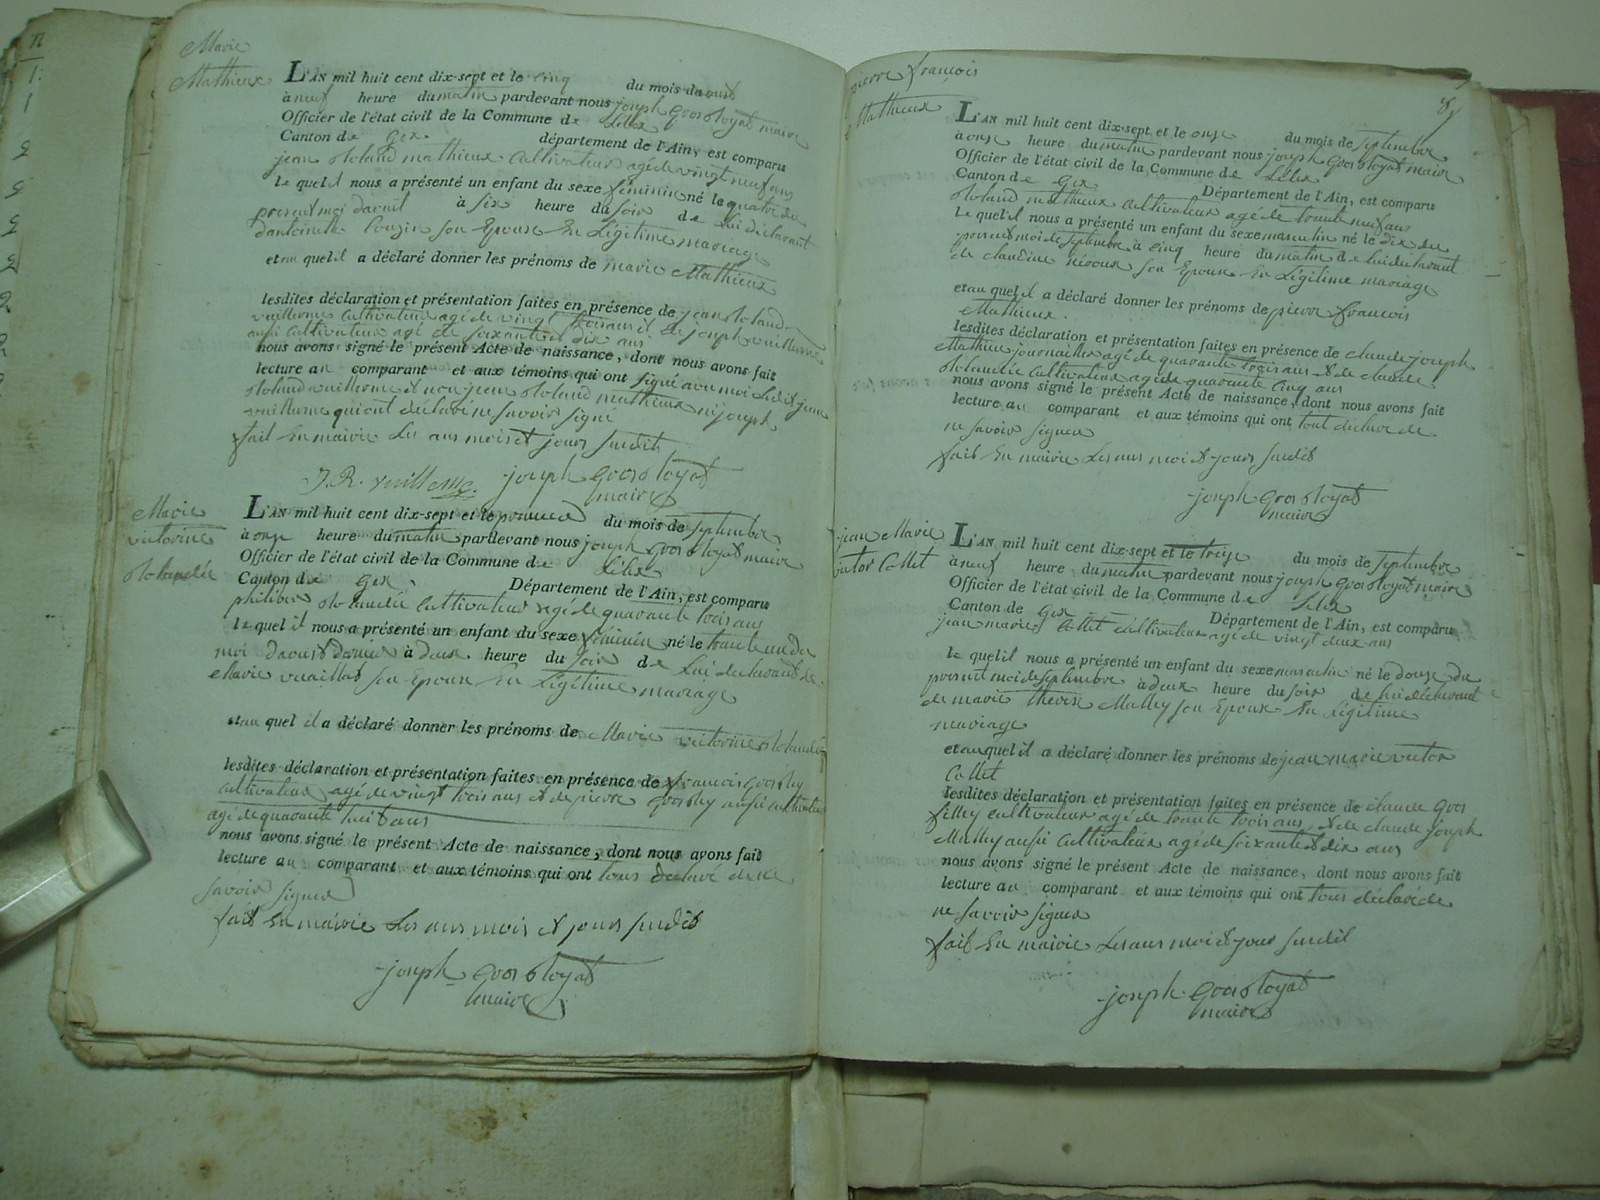 Marie
Mathieux
L'AN mil huit cent dix-sept et le cinq du mois daout
à neuf heure du matin pardevant nous joseph Gros Royat maire
Officier de l'état civil de la Commune de Lélex
Canton de Gex département de l'Ain, est comparu
jean Roland mathieux Cultivateur agé de vingt neuf ans
Le quel il nous a présenté un enfant du sexe féminin né le quatre du
present moi daout à six heure du soir de Lui déclarant
dantoinete son Epouse En Légitime mariage
et au quel il a déclaré donner les prénoms de marie Mathieux
lesdites déclaration et présentation faites en présence de jean Roland
vuillerme Cultivateur agé de vingt trois ans et de joseph vuillerme
aussi Cultivateur agé de soixante et dix ans
nous avons signé le présent Acte de naissance, dont nous avons fait
lecture au comparant et aux témoins qui ont signé avec moi Ledit jean
Roland vuillerme et non jean Roland mathieux ni joseph
vuillerme qui ont déclaré ne savoir signé
fait En mairie Les ans mois et jours susdits
J. R. vuillerme joseph Gros Royat
maire
Marie
victorine
Rolandée
L'AN mil huit cent dix-sept et le premier du mois de septembre
à onze heure du matin pardevant nous joseph Gros Royat maire
Officier de l'état civil de la Commune de Lélex
Canton de Gex Département de l'Ain, est comparu
philiber Rolandée Cultivateur agé de quarante trois ans
Le quel il nous a présenté un enfant du sexe féminin né le trente un du
moi daoust dernier à deux heure du soir de Lui déclarant de
Marie son Epouse En Légitime mariage
et au quel il a déclaré donner les prénoms de Marie victorine Rolandée
lesdites déclaration et présentation faites en présence de francois
Cultivateur agé de vingt trois ans et de pierre aussi cultivateur
agé de quarante huit ans
nous avons signé le présent Acte de naissance, dont nous avons fait
lecture au comparant et aux témoins qui ont tous déclaré de ne
savoir signer
fait En mairie Les ans mois et jours susdits
joseph Gros Royat
maire
pierre francois
Mathieux
L'AN mil huit cent dix-sept et le onze du mois de septembre
à onze heure du matin pardevant nous joseph Gros Royat maire
Officier de l'état civil de la Commune de Lélex
Canton de Gex Département de l'Ain, est comparu
Roland mathieux Cultivateur agé de trente neuf ans
Le quel il nous a présenté un enfant du sexe masculin né le dix du
present moi de septembre à cinq heure du matin de Lui déclarant
de claudine son Epouse En Légitime mariage
et au quel il a déclaré donner les prénoms de pierre francois
Mathieux.
lesdites déclaration et présentation faites en présence de claude joseph
Mathieu journailler agé de quarante trois ans & de claude
Rolandée Cultivateur agé de quarante Cinq ans
nous avons signé le présent Acte de naissance, dont nous avons fait
lecture au comparant et aux témoins qui ont tout déclaré de
ne savoir signer
fait En mairie Les ans moi & jours susdit
joseph Gros Royat
maire
jean Marie
victor Collet
L'AN mil huit cent dix-sept et le treize du mois de septembre
à neuf heure du matin pardevant nous joseph Gros Royat maire
Officier de l'état civil de la Commune de Lélex
Canton de Gex Département de l'Ain, est comparu
jean marie Collet cultivateur agé de vingt deux ans
Le quel il nous a présenté un enfant du sexe masculin né le douze du
present moi de septembre à deux heure du soir de Lui déclarant
de marie therese Malley son Epouse En Légitime
mariage
et au quel il a déclaré donner les prénoms de jean marie victor
Collet
lesdites déclaration et présentation faites en présence de claude Gros
fillry cultivateur agé de trente trois ans & de claude joseph
Malley aussi Cultivateur agé de soixante & dix ans
nous avons signé le présent Acte de naissance, dont nous avons fait
lecture au comparant et aux témoins qui ont tous déclaré de
ne savoir signer
fait En mairie Les ans moi & jour susdit
joseph Gros Royat
maire